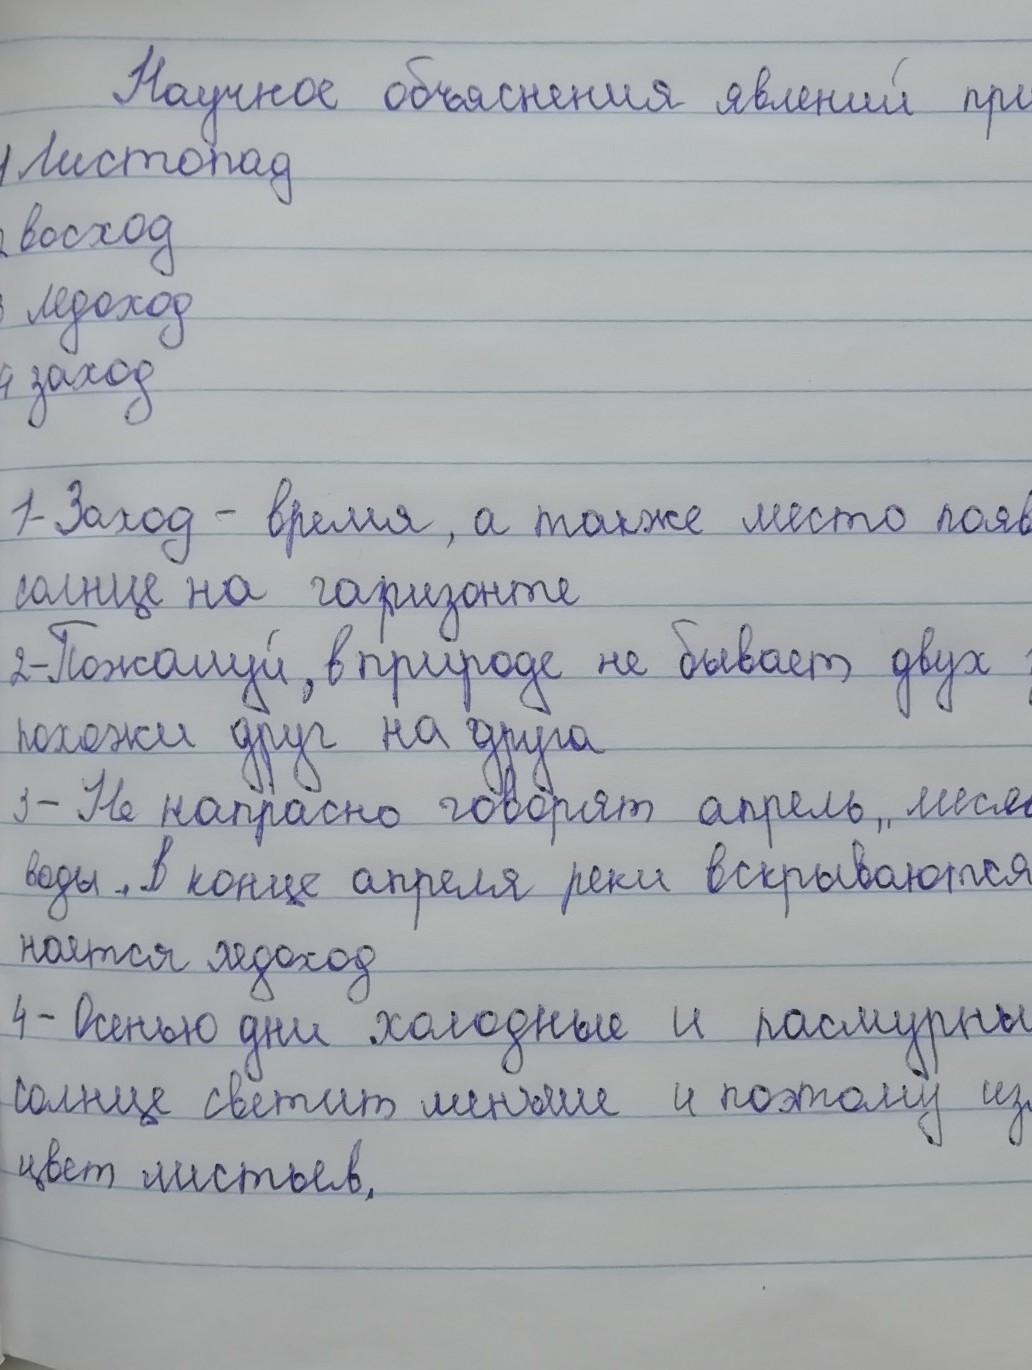 Научное объяснения явлений при
1 Листопад
2 восход
3 ледоход
4 заход
1-Заход - время, а также место появ
солнце на гаризонте
2-Пожалуй, в природе не бывает двух
похожи друг на друга
3- Не напрасно говорят апрель „ меся
воды. В конце апреля реки вскрываются
нается ледоход
4- Осенью дни холодные и пасмурны
солнце светит меньше и поэтому из
цвет листьев,